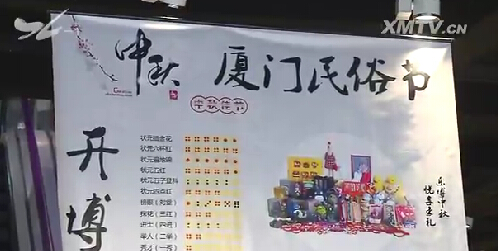 XMTV.CN
中秋
厦门民俗节
中秋佳节
开博
状元插金花
状元六杯红
状元遍地锦
状元五红
状元五子登科
状元四点红
榜眼(对堂)
探花(三红)
进士(四进)
举人(二举)
秀才(一秀)
乐博中秋
悦享豪礼